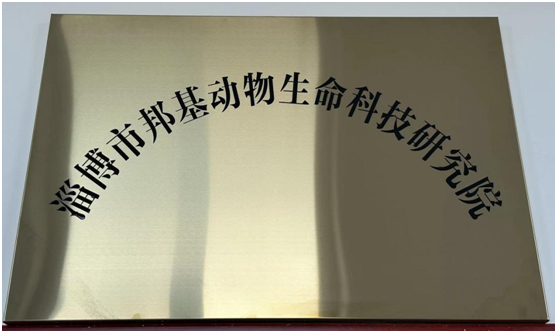 淄博市邦基动物生命科技研究院